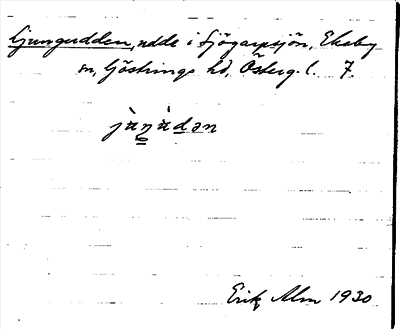 Ljungudden, udde i Sjögarpsjön, Ekeby
sn, Göstrings hd, Östерg. l. 7.
jùŋùdən
Erik Alm 1930